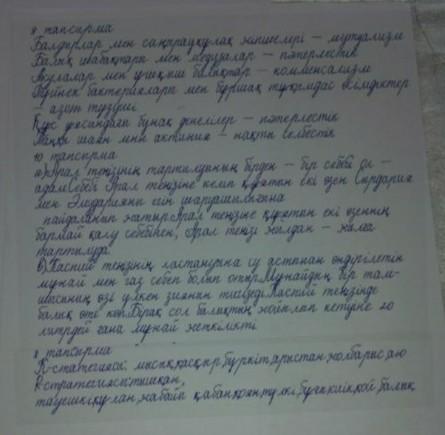 9 тапсырма
Балдырлар мен саңырауқұлақ жіпшелері – мутуализм
Балық шабақтары мен медузалар – пәтерлестік
Акулалар мен ұшқыш балықтар – комменсализм
Түйнек бактериялары мен бұршақ тұқымдас өсімдіктер
– азот түзуші
Құс ұясындағы бунақ денелілер – пәтерлестік
Таңқы шаян мен актиния – нақты селбестік
10 тапсырма
а) Арал теңізінің тартылуының бірден – бір себебі ол –
адам. Себебі Арал теңізіне келіп құятын екі өзен Сырдария
мен Әмударияны егін шаруашылығына
пайдаланып жатыр. Арал теңізіне құятын екі өзеннің
бармай қалу себебінен, Арал теңізі жылдан – жылға
тартылуда.
б) Каспий теңізінің ластануына су астынан өндірілетін
мұнай мен газ себеп болып отыр. Мұнайдың бір там-
шысының өзі үлкен зиянын тигізеді. Каспий теңізінде
балық өте көп. Бірақ сол балықтың жойылып кетуіне 20
литрдей ғана мұнай жеткілікті.
8 тапсырма
К-стратегиясы: мысық, қасқыр, бүркіт, арыстан, жолбарыс, аю
R-стратегиясы: тышқан,
тауешкі, құлан, жабайы қабан, қоян, түлкі, бұғы, киік, қой, балық